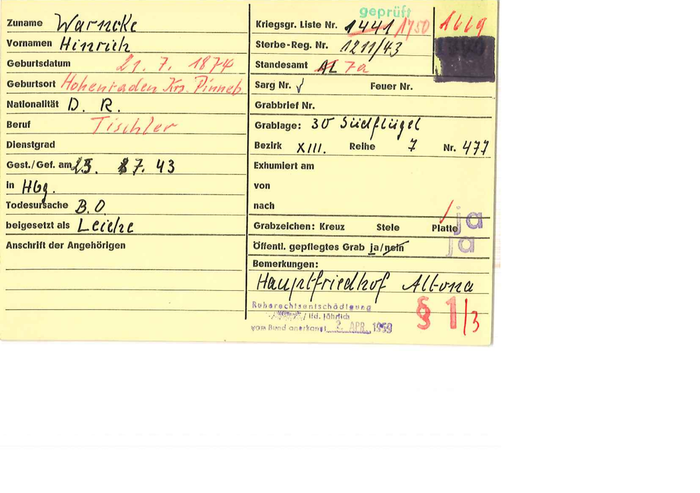 geprüft
Zuname Warncke
Vornamen Hinrich
Geburtsdatum 21. 7. 1874
Geburtsort Hohenraden Krs. Pinneb
Nationalität D. R.
Beruf Tischler
Dienstgrad
Gest./Gef. am 25. 7. 43
in Hbg.
Todesursache B. O.
beigesetzt als Leiche
Anschrift der Angehörigen
Kriegsgr. Liste Nr. 1441 1750 1669
Sterbe-Reg. Nr. 1211/43
Standesamt AL 7a
Sarg Nr. √ Feuer Nr.
Grabbrief Nr.
Grablage: 30 Südflügel
Bezirk XIII. Reihe 7 Nr. 477
Exhumiert am
von
nach
Grabzeichen: Kreuz Stele Platte ja
Öffentl. gepflegtes Grab ja/nein ja
Bemerkungen:
Hauptfriedhof Altona
Ruherechtsentschädigung
/ lfd. jährlich
vom Bund anerkannt 2. APR. 1959
§ 1/3